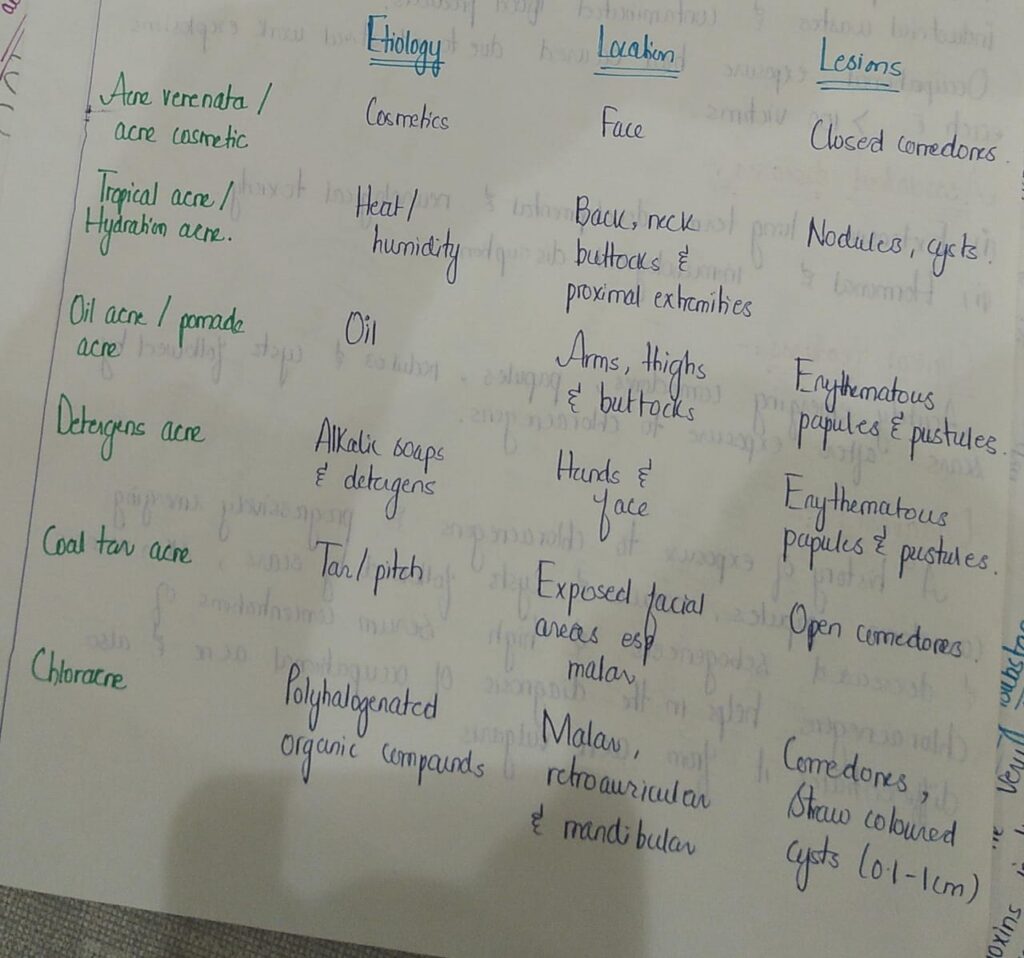 Etiology Location Lesions
Acne verenata / Cosmetics Face Closed comedones.
acne cosmetic
Tropical acne / Heat / Back, neck Nodules, cysts.
Hydration acne. humidity buttocks &
proximal extremities
Oil acne / pomade Oil Arms, thighs Erythematous
acne & buttocks papules & pustules.
Detergens acne Alkalic soaps Hands & Erythematous
& detergens face papules & pustules.
Coal tar acne Tar / pitch Exposed facial Open comedones.
areas esp
malar
Chloracne Polyhalogenated Malar, Comedones,
organic compounds retroauricular Straw coloured
& mandibular cysts (0.1-1cm)